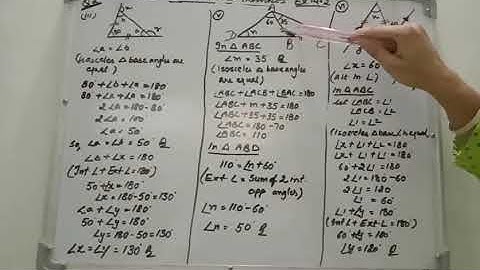 Ex 14.2
(iii)
∠a = ∠b
(isosceles △ base angles are
equal)
80 + ∠b + ∠a = 180
80 + ∠a + ∠a = 180
2∠a = 180-80
2∠a = 100
∠a = 50°
So, ∠a = ∠b = 50°
∠a + ∠x = 180
(Int ∠ + Ext ∠ = 180)
50 + x = 180
∠x = 180-50 = 130°
∠a + ∠y = 180°
50 + ∠y = 180°
∠y = 180-50 = 130°
∠x = ∠y = 130°
(v)
A
60
35
D
n
m
B
C
In △ ABC
∠m = 35
(isosceles △ base angles
are equal)
∠ABC + ∠ACB + ∠BAC = 180
∠ABC + m + 35 = 180
∠ABC + 35 + 35 = 180
∠ABC = 180-70
∠ABC = 110
In △ ABD
110 = ∠n + 60°
(Ext ∠ = Sum of 2 int
opp angles)
∠n = 110-60°
∠n = 50°
x
∠x = 60°
(alt in ∠)
In △ ABC
Let ∠ABC = ∠1
∠ACB = ∠2
∠1 = ∠2
(Isosceles △ base ∠ equal)
∠x + ∠1 + ∠2 = 180
∠x + ∠1 + ∠1 = 180
60 + 2∠1 = 180
2∠1 = 180-60
2∠1 = 120
∠1 = 60°
∠1 + ∠y = 180
(Int ∠ + Ext ∠ = 180)
60 + ∠y = 180
∠y = 120°